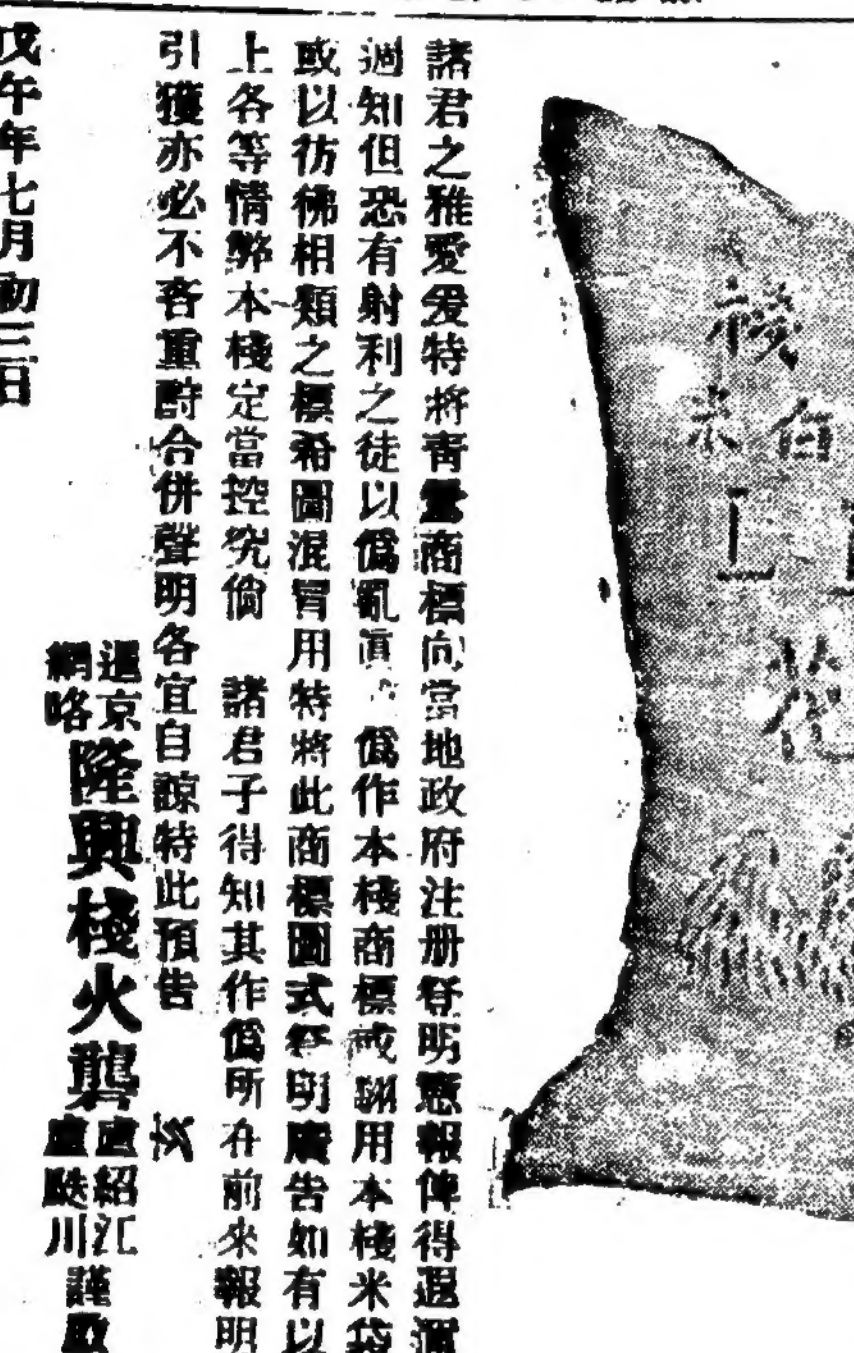 諸君之雅愛爰特將青鸞商標向當地政府注册登明憲報俾得遐邇
週知但恐有射利之徒以僞亂眞僞作本棧商標或冒用本棧米袋
或以彷彿相類之標希圖混冒用特將此商標圖式登明廣告如有以
上各等情弊本棧定當控究倘 諸君子得知其作僞所在前來報明
引獲亦必不吝重酧合併聲明各宜自諒特此預告
暹京
網咯
隆興棧火礱
盧紹江
盧川
謹啟
戊午年七月初三日
棧
白米
花